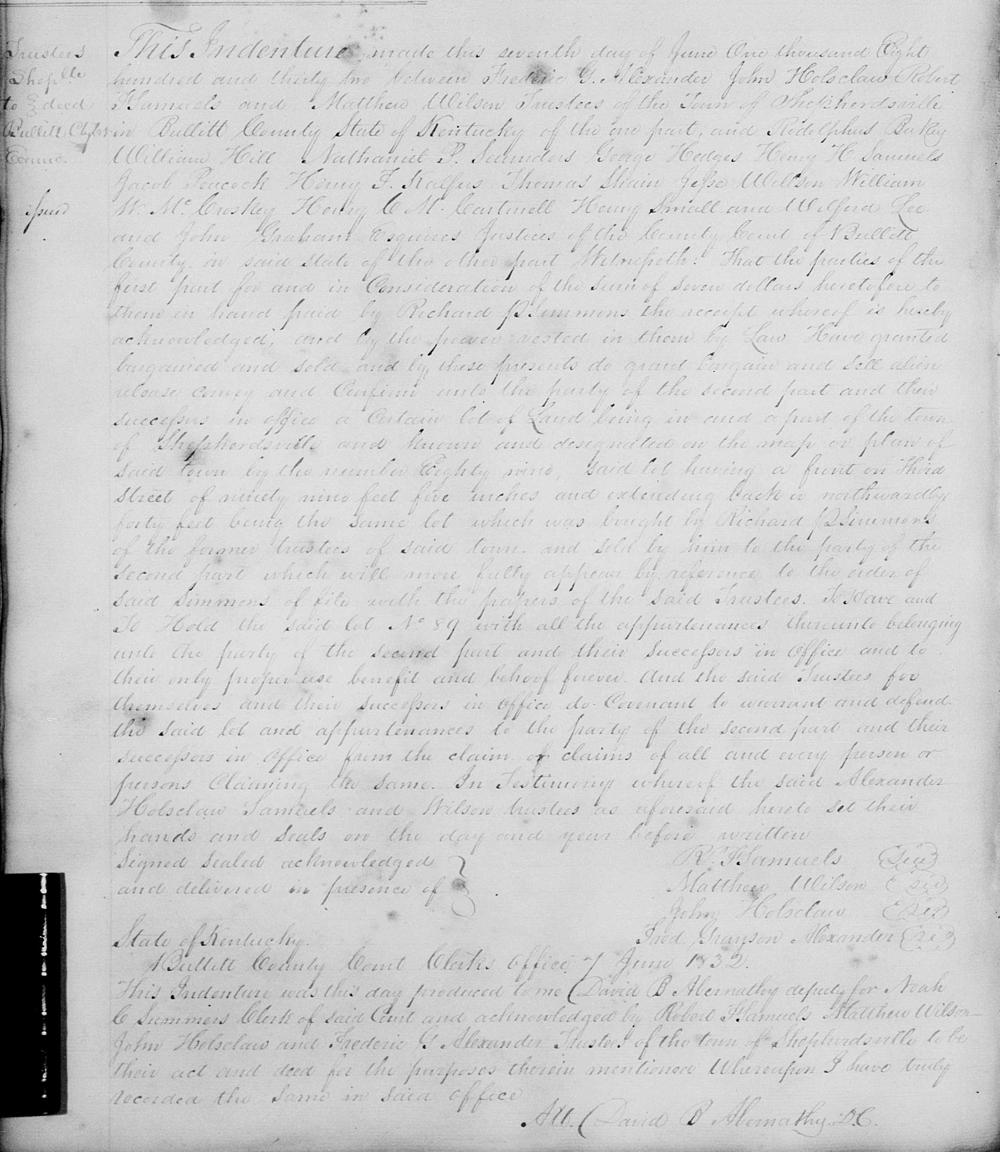 Trustees
Shep lle
to } deed
Bullitt Cty
Commo.
issued
This Indenture made this seventh day of June One thousand Eight
hundred and thirty two between Frederic G. Alexander John Holsclaw Robert
F Samuels and Matthew Wilson Trustees of the Town of Shepherdsville
in Bullitt County State of Kentucky of the one part, and Rodolphus
William Hill Nathaniel P. Saunders George Hedges Henry H. Samuels
Jacob Peacock Henry F. Kalfus Thomas Shain Jesse Willson William
W. McCroskey Henry C M. Cartmell Henry Small and Wilford Lee
and John Graham Esquires Justices of the County Court of Bullitt
County in said state of the other part Witnesseth: That the parties of the
first part for and in Consideration of the sum of seven dollars heretofore to
them in hand paid by Richard Simmons the receipt whereof is hereby
acknowledged, and by the power vested in them by Law Have granted
bargained and sold and by these presents do grant bargain and Sell alien
release convey and Confirm unto the party of the second part and their
successors in office a Certain lot of Land being in and a part of the town
of Shepherdsville and known and designated on the map or plan of
said town by the number Eighty nine, said lot having a front on Third
Street of ninety nine feet five inches and extending back northwardly
forty feet being the same lot which was bought by Richard Simmons
of the former trustees of said town and sold by him to the party of the
second part which will more fully appear by reference to the order of
said Simmons of file with the papers of the said Trustees. To Have and
To Hold the said lot No 89 with all the appurtenances thereunto belonging
unto the party of the second part and their successors in Office and to
their only proper use benefit and behoof forever. And the said Trustees for
themselves and their successors in Office do Covenant to warrant and defend
the said lot and appurtenances to the party of the second part and their
successors in Office from the claim or claims of all and every person or
persons Claiming the same. In Testimony whereof the said Alexander
Holsclaw Samuels and Wilson trustees as aforesaid hereto set their
hands and seals on the day and year before written
Signed sealed acknowledged }
and delivered in presence of }
R. F Samuels
Matthew Wilson
John Holsclaw
Fred Grayson Alexander
State of Kentucky.
Bullitt County Court Clerks Office 7 June 1832
This Indenture was this day produced to me (David B Abernathy deputy for Noah
C Summers Clerk of said Court and acknowledged by Robert F Samuels Matthew Wilson
John Holsclaw and Frederic G Alexander Trustees of the town of Shepherdsville to be
their act and deed for the purposes therein mentioned Whereupon I have truly
recorded the same in said office
Att. (David B Abernathy. D.C.